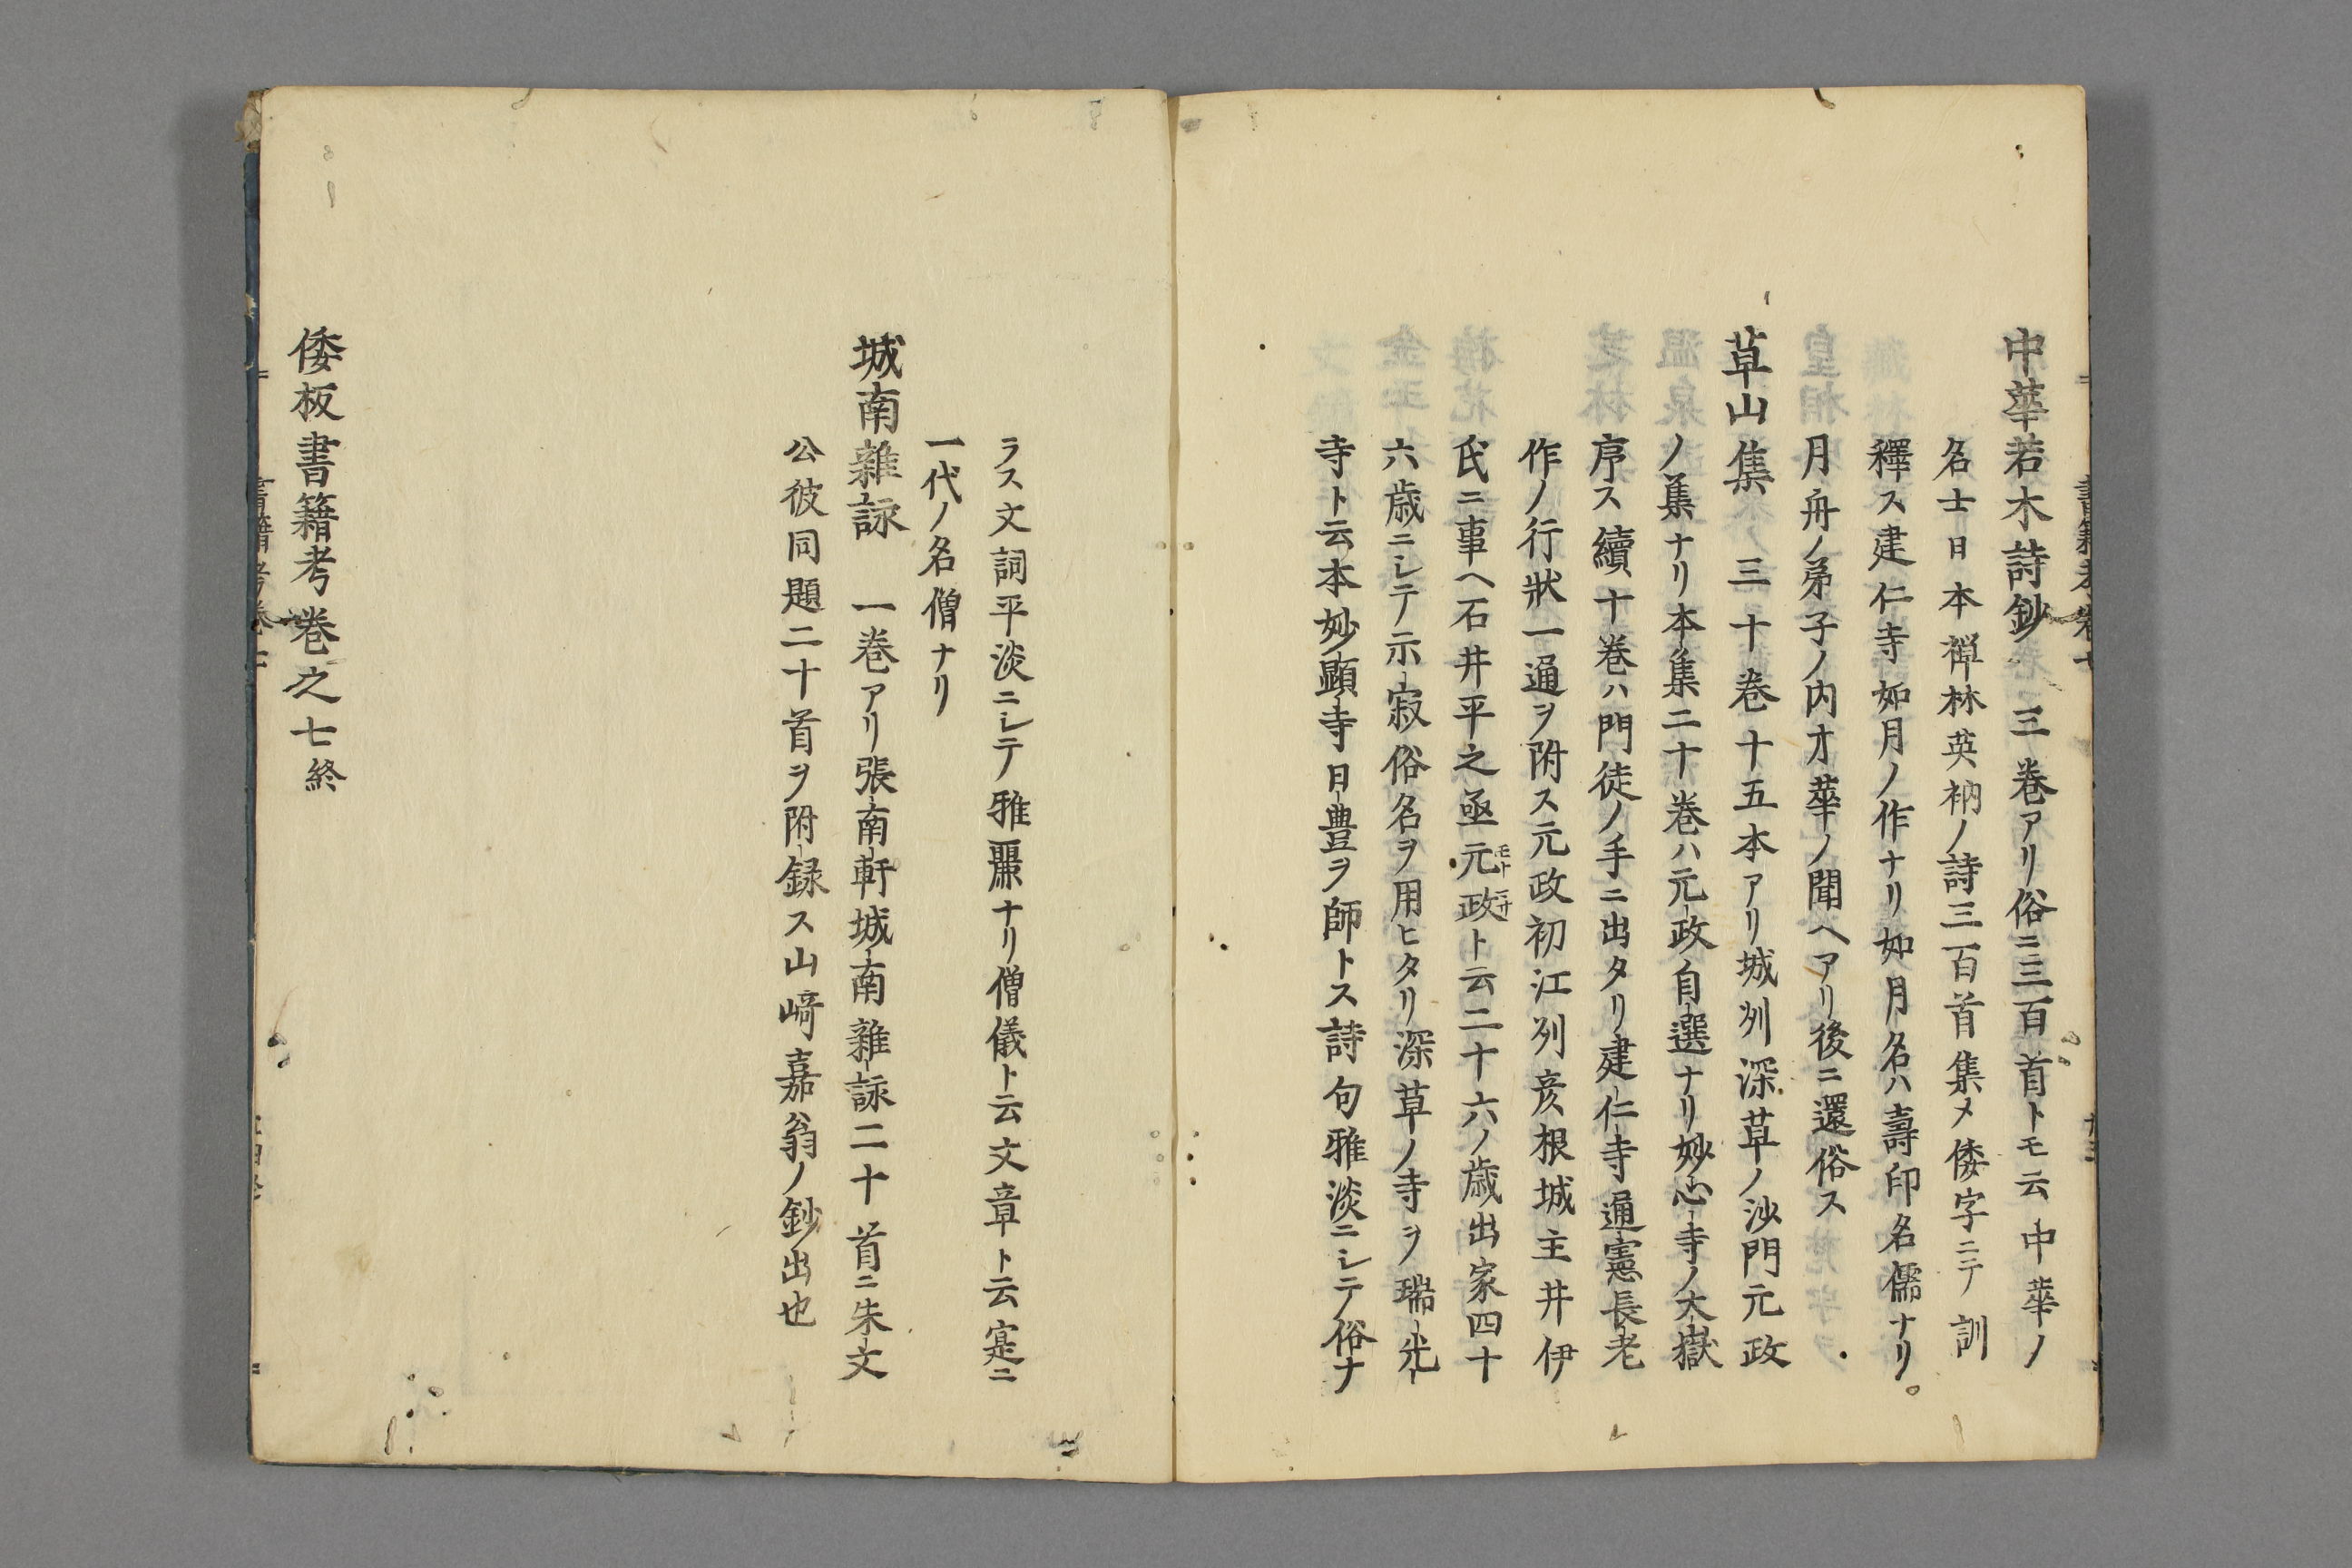 中華若木詩鈔 三巻アリ俗ニ三百首トモ云中華ノ
名士日本禅林英衲ノ詩三百首集メ倭字ニテ訓
釋ス建仁寺如月ノ作ナリ如月名ハ壽印名儒ナリ。
月舟ノ弟子ノ内才華ノ聞ヘアリ後ニ還俗ス
草山集 三十巻十五本アリ城列深草ノ沙門元政
ノ集ナリ本集二十巻ハ元政自選ナリ妙心寺ノ大嶽
序ス續十巻ハ門徒ノ手ニ出タリ建仁寺通憲長老
作ノ行狀一通ヲ附ス元政初江列彦根城主井伊
氏ニ事ヘ石井平之亟元政ト云二十六ノ歳出家四十
六歳ニシテ示寂俗名ヲ用ヒタリ深草ノ寺ヲ瑞光
寺ト云本妙顕寺日豊ヲ師トス詩句雅淡ニシテ俗ナ
ラス文詞平淡ニシテ雅麗ナリ僧儀ト云文章ト云寔ニ
一代ノ名僧ナリ
城南雜詠 一巻アリ張南軒城南雜詠二十首ニ朱文
公彼同題二十首ヲ附録ス山﨑嘉翁ノ鈔出也
倭板書籍考巻之七終